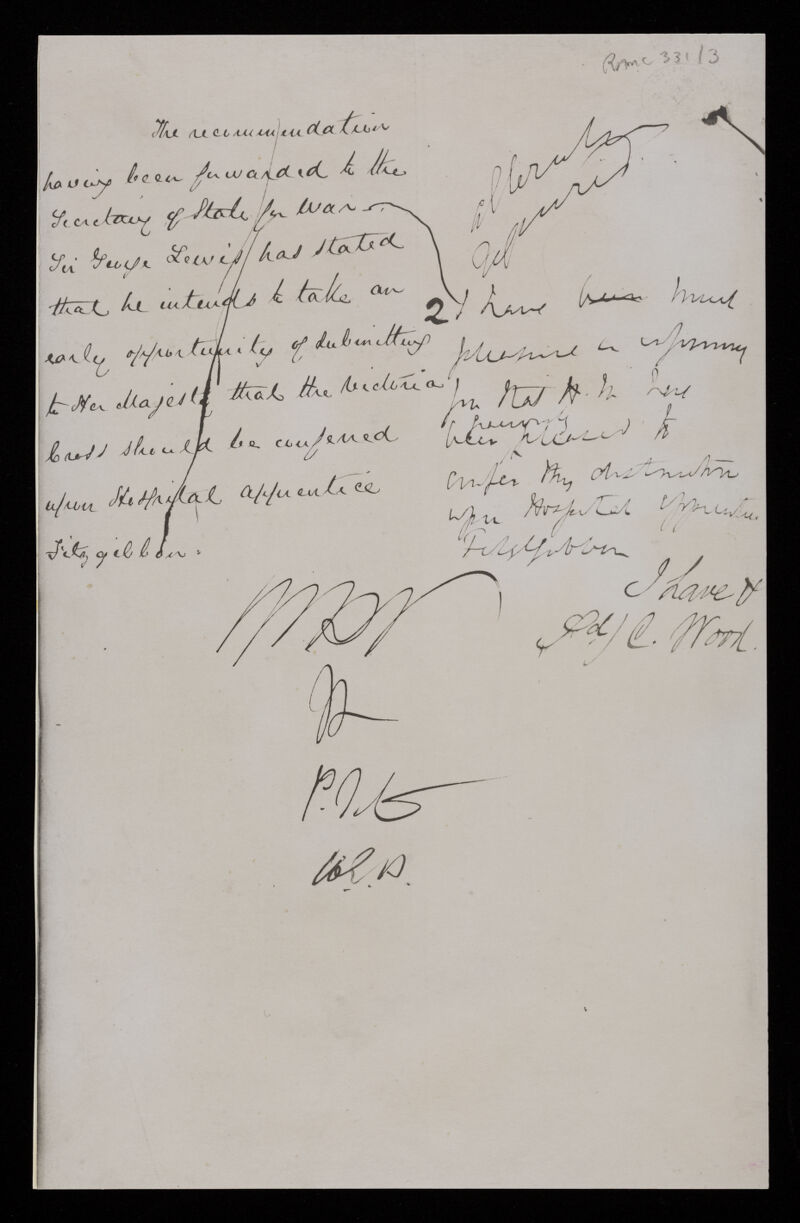 RAMC 331/3
The recommendation
having been forwarded to the
Secretary of State for War
Sir George Lewis has stated
that he intends to take an
early opportunity of submitting
to Her Majesty that the Victoria
Cross should be conferred
upon Hospital apprentice
Fitzgibbon.
2 I have been much
pleasure in informing
you that H. M. have
graciously
been pleased to
confer this distinction
upon Hospital apprentice
FitzGibbon
I have &
(Sd) C. Wood.